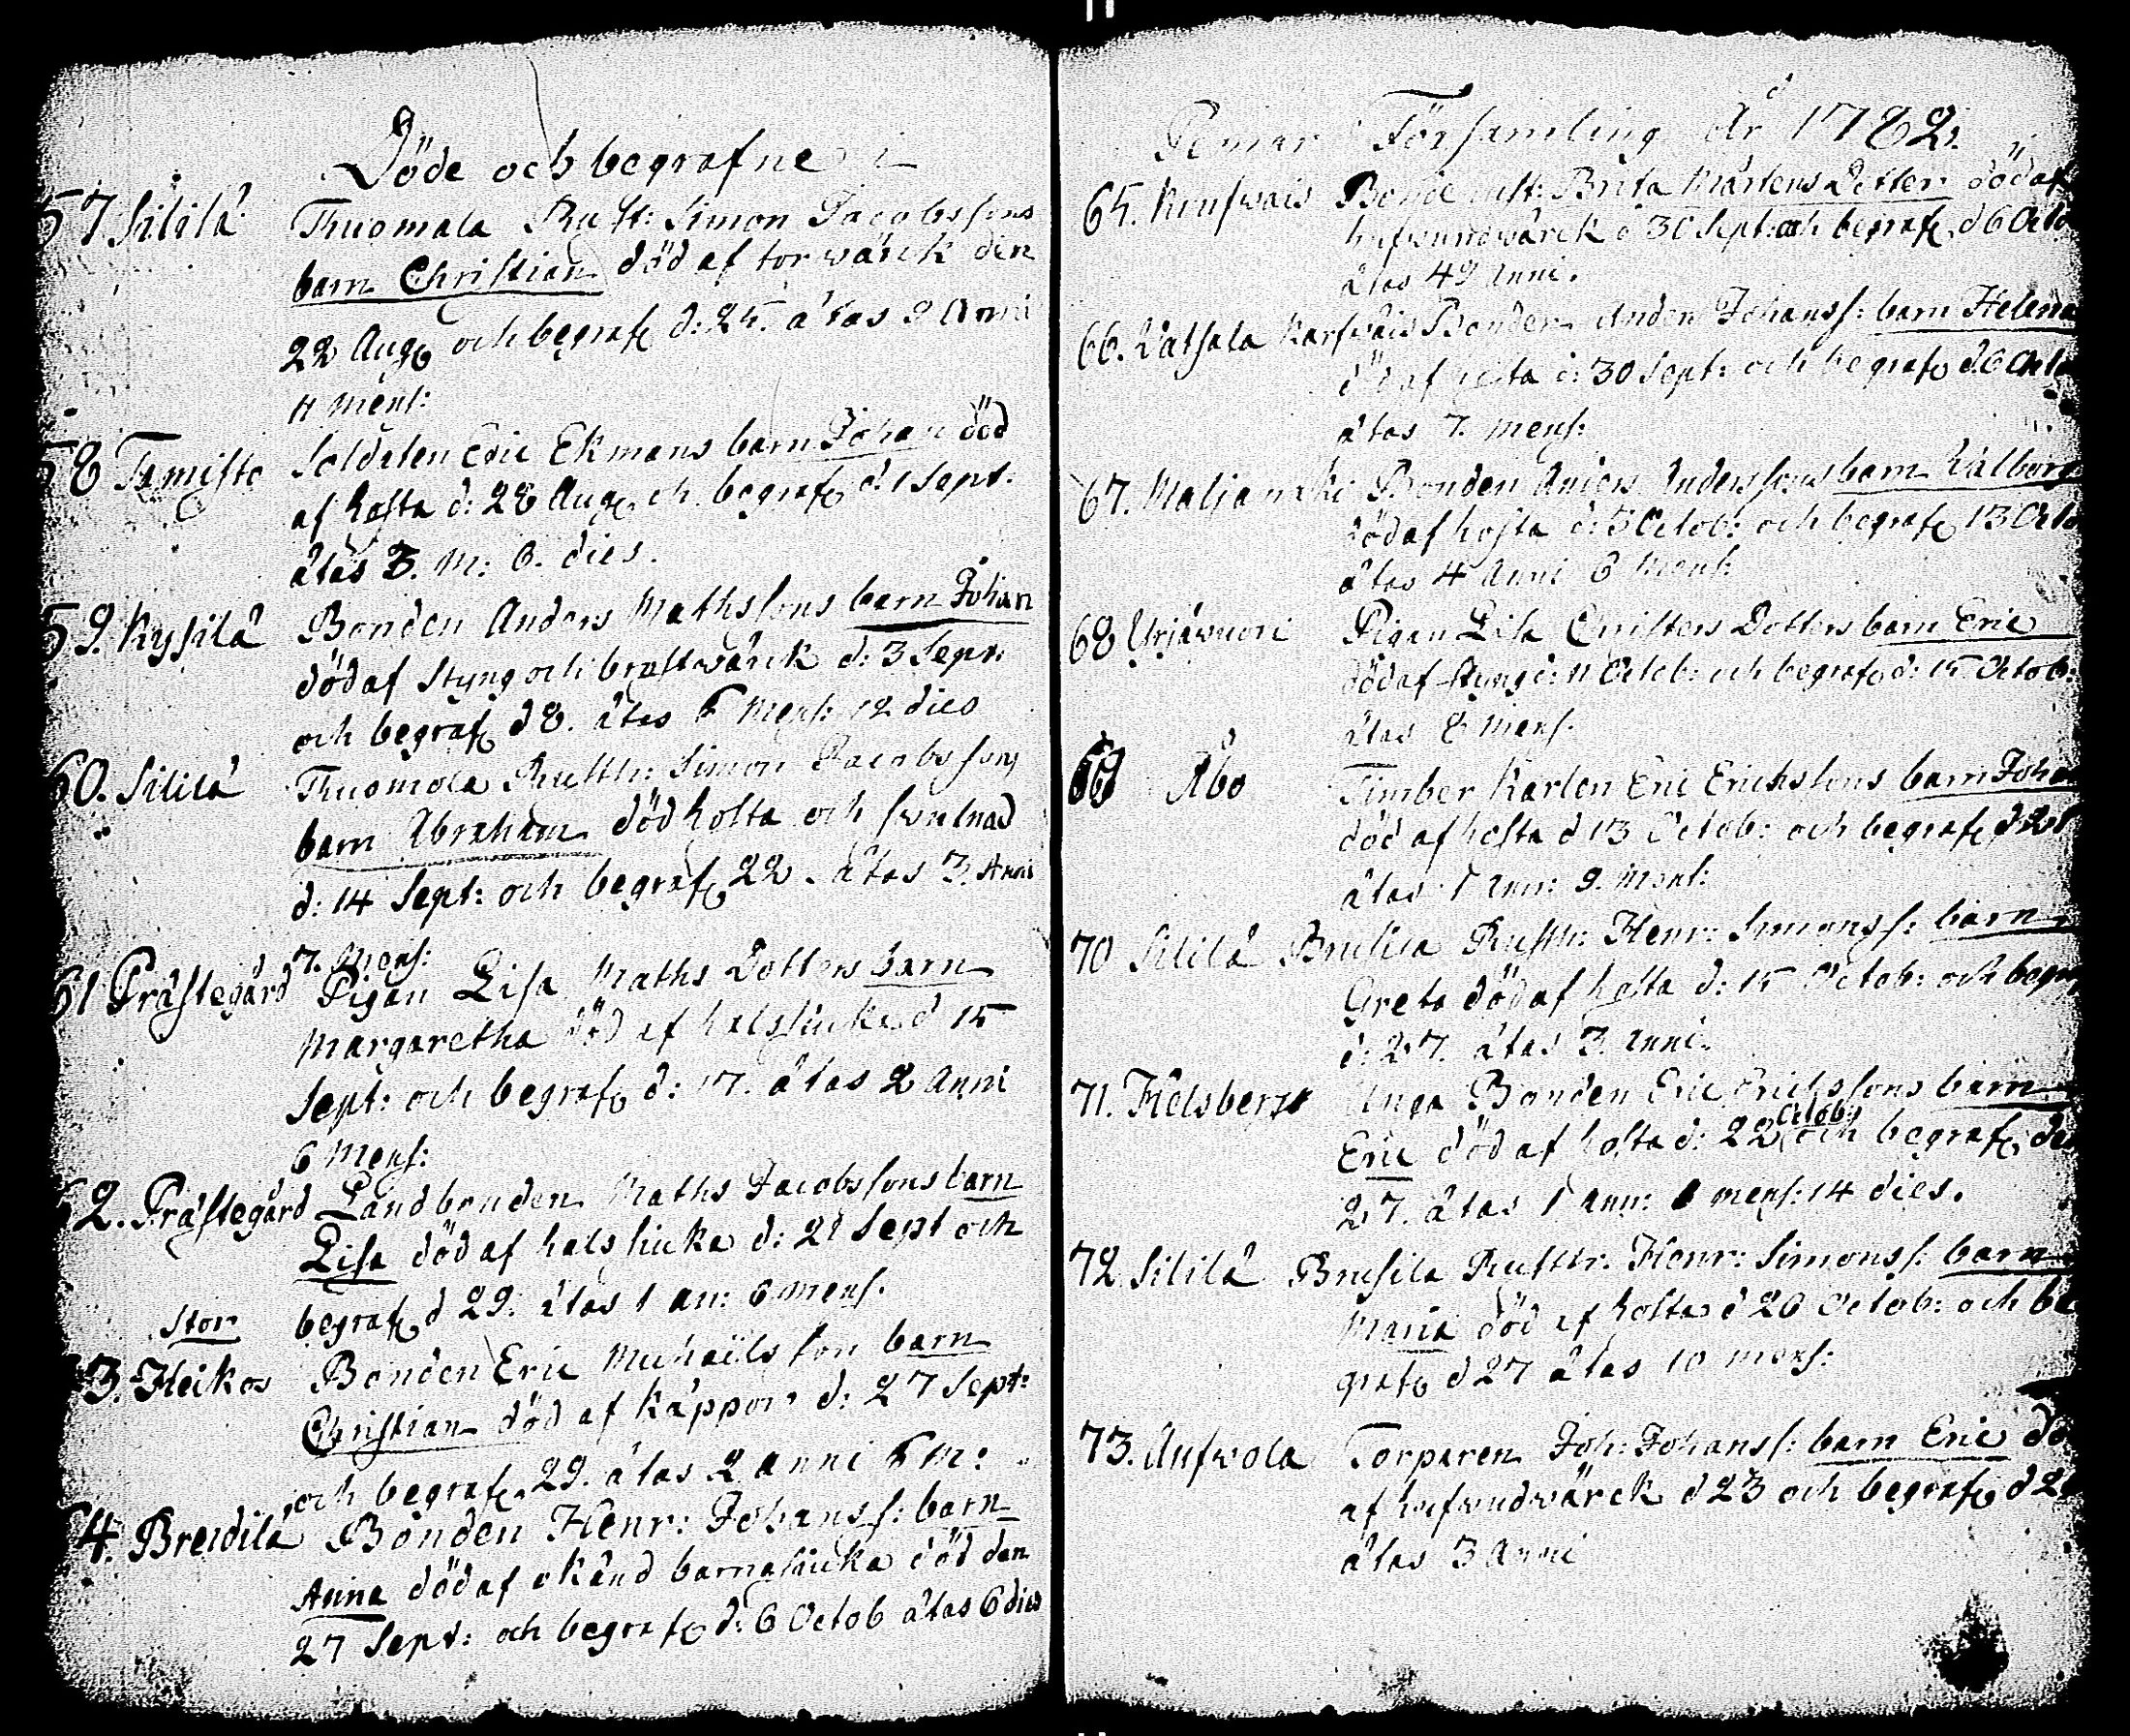 Döde och begrafne i
57. Sililä Thuomala Rust: Simon Jacobssons
barn Christian död af torwärck den
22 Aug och begraf d: 25. ätas 2 Anni
11 Mens:
58 Tamisto Soldaten Eric Ekmans barn Johan död
af hosta d: 28 Aug och begraf d. 1 Sept:
ätas 3. M: 6. dies.
59. Kysilä Bonden Anders Mathssons barn Johan
död af Styng och bröstwärck d: 3 Sept:
och begraf d 8. ätas 5 Mens: 12 dies
60. Sililä Thuomola Rustlr: Simon Jacobssons
barn Abraham död hosta och swulnad
d: 14 Sept: och begraf 22. ätas 3. Anni
7. Mens:
61 Prästegård Pigan Lisa Maths Dotters barn
Margaretha död af halssiuka d 15
Sept: och begraf d: 17. ätas 2 Anni
6 Mens:
62. Prästegård Landbonden Maths Jacobssons barn
Lisa död af halssiuka d: 21 Sept och
begraf d 29. ätas 1 an: 6 mens.
Stor
63. Heikos Bonden Eric Michaëlsson barn
Christian död af Käppor d: 27 Sept:
och begraf 29. ätas 2 anni 5 M:
64. Breidilä Bonden Henr: Johanss: barn
Anna död af okänd barnasiuka död den
27 Sept: och begraf d: 6 Octob ätas 6 dies
Pemar Församling år 1782.
65. Bonde Brita Mårtens Dotter död af
hufwudwärck d 30 Sept: och begraf d 6 Octo
ätas 49 Anni.
66. Watsala Karfwais Bonden Anders Johanss: barn Helena
död af hosta d: 30 Sept: och begraf d. 6 Octo
ätas 7. mens:
67. Maljamäki Bonden Anders Anderssons barn Walborg
död af hosta d: 5 Octob: och begraf 13 Octo
ätas 4 Anni 6 Mens:
68 Urjäwuori Pigan Lisa Christers Dotters barn Eric
död af Styng d: 11 Octob: och begraf d: 15 Octob:
ätas 8 Mens.
69 Åbo Timber Karlen Eric Erickssons barn Joha
död af hosta d 13 Octob: och begraf d 21
ätas 1 Ann: 9. Mens:
70 Sililä Brusila Rustlr: Henr: Simonss: barn
Greta död af hosta d: 15 Octob: och begr
d: 27. ätas 3. Anni.
71. Helsberg Unga Bonden Eric Erichssons barn
Eric död af hosta d: 22 Octob: och begraf de
27. ätas 1 Ann: mens: 14 dies.
72 Sililä Brusila Rustlr: Henr: Simonss: barn
Maria död af hosta d 20 Octob: och be
graf d 27 ätas 10 mens:
73. Aufwola Torparen Joh: Johanss: barn Eric dö
af hufwudwärck d 23 och begraf d 2
ätas 3 Anni